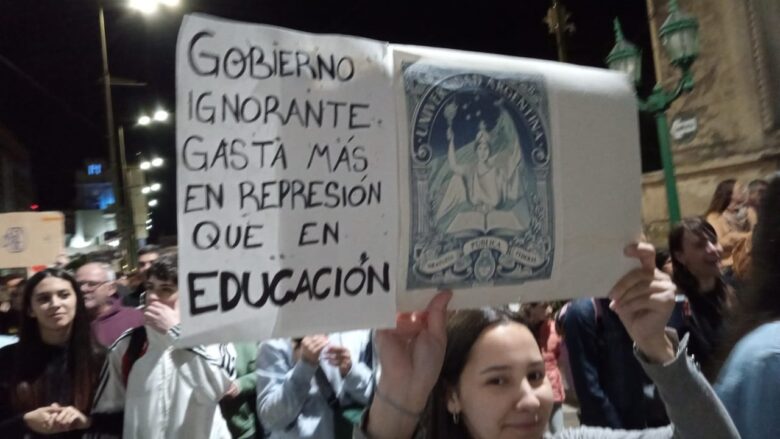 GOBIERNO
IGNORANTE
GASTA MÁS
EN REPRESIÓN
QUE EN
EDUCACIÓN
UNIVERSIDAD ARGENTINA
PÚBLICA